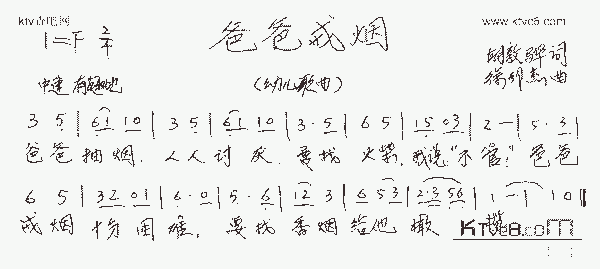 www.ktvc8.com
1=F 2/4
爸爸戒烟
词
中速 有趣地
(幼儿歌曲)
徐邦杰曲
3 5 | 61 10 | 3 5 | 61 10 | 3·5 | 6 5 | 15 03 | 2 — | 5·3 |
爸爸抽烟,人人讨厌,要找火柴,我说:"不管!"爸爸
6 5 | 32 01 | 6·0 | 5·6 | 12 3 | 6 53 | 2·3 56 | 1 — | 1 10 ‖
戒烟十分困难,要找香烟给他撒
KTvc8.com